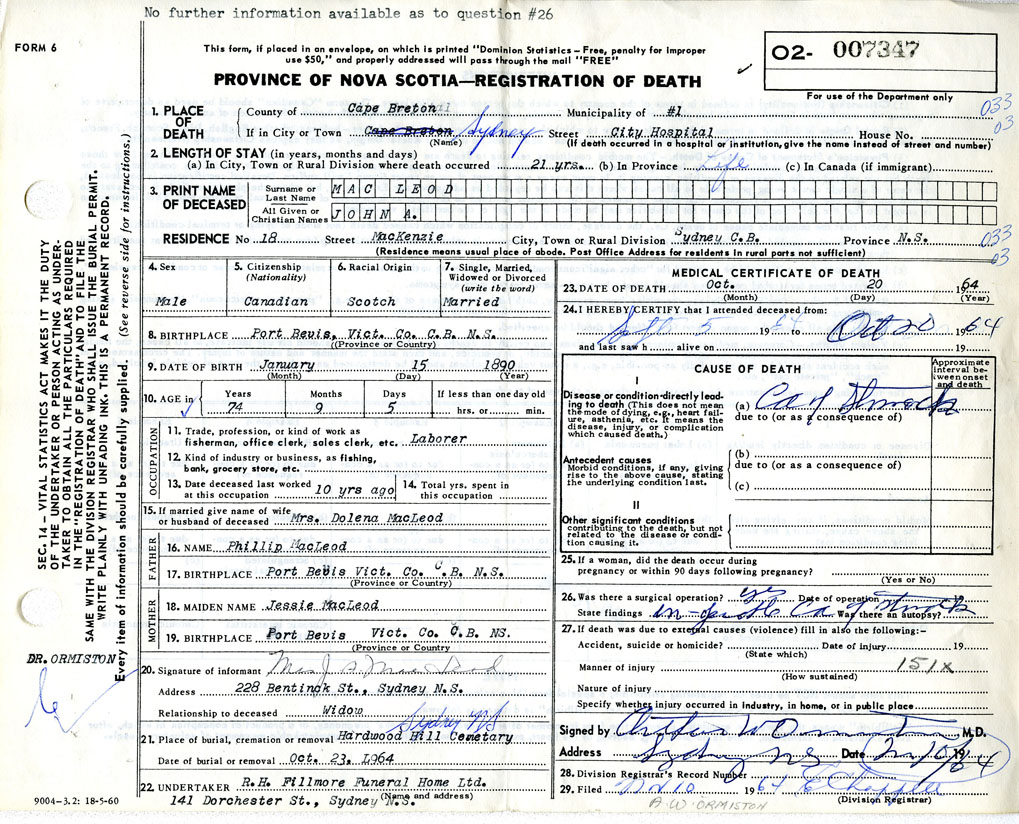 No further information available as to question #26
FORM 6
This form, if placed in an envelope, on which is printed "Dominion Statistics – Free, penalty for improper
use $50," and properly addressed will pass through the mail "FREE"
02- 007347
For use of the Department only
PROVINCE OF NOVA SCOTIA—REGISTRATION OF DEATH
033
03
1. PLACE OF DEATH
County of Cape Breton Municipality of #1
If in City or Town Cape Breton Sydney Street City Hospital House No.
(Name) (If death occurred in a hospital or institution, give the name instead of street and number)
2. LENGTH OF STAY (in years, months and days)
(a) In City, Town or Rural Division where death occurred 21 yrs. (b) In Province Life (c) In Canada (if immigrant)
3. PRINT NAME OF DECEASED
Surname or Last Name MAC LEOD
All Given or Christian Names JOHN A.
RESIDENCE No 18 Street MacKenzie City, Town or Rural Division Sydney C.B. Province N.S.
(Residence means usual place of abode. Post Office Address for residents in rural parts not sufficient)
033
03
4. Sex
Male
5. Citizenship
(Nationality)
Canadian
6. Racial Origin
Scotch
7. Single, Married,
Widowed or Divorced
(write the word)
Married
8. BIRTHPLACE Port Bevis, Vict. Co. C.B. N.S.
(Province or Country)
9. DATE OF BIRTH January 15 1890
(Month) (Day) (Year)
10. AGE in
Years Months Days If less than one day old
74 9 5 hrs. or min.
OCCUPATION
11. Trade, profession, or kind of work as
fisherman, office clerk, sales clerk, etc. Laborer
12. Kind of industry or business, as fishing,
bank, grocery store, etc.
13. Date deceased last worked
at this occupation 10 yrs ago
14. Total yrs. spent in
this occupation
15. If married give name of wife
or husband of deceased Mrs. Dolena MacLeod
FATHER
16. NAME Phillip MacLeod
17. BIRTHPLACE Port Bevis Vict. Co. C.B. N.S.
(Province or Country)
MOTHER
18. MAIDEN NAME Jessie MacLeod
19. BIRTHPLACE Port Bevis Vict. Co. C.B. NS.
(Province or Country)
20. Signature of informant Mrs J. A. MacLeod
Address 228 Bentinck St., Sydney N.S.
Relationship to deceased Widow
Sydney NS
21. Place of burial, cremation or removal Hardwood Hill Cemetary
Date of burial or removal Oct. 23. 1964
22. UNDERTAKER R.H. Fillmore Funeral Home Ltd.
(Name and address)
141 Dorchester St., Sydney N.S.
MEDICAL CERTIFICATE OF DEATH
23. DATE OF DEATH Oct. 20 1964
(Month) (Day) (Year)
24. I HEREBY CERTIFY that I attended deceased from:
Sept 5 1964 to Oct 20 1964
and last saw h alive on 19
CAUSE OF DEATH
Approximate
interval between onset
and death
I
Disease or condition directly leading to death (This does not mean
the mode of dying, e.g., heart failure, asthenia, etc. It means the
disease, injury, or complication
which caused death.)
(a) Ca of Stomach
due to (or as a consequence of)
Antecedent causes
Morbid conditions, if any, giving
rise to the above cause, stating
the underlying condition last.
(b)
due to (or as a consequence of)
(c)
II
Other significant conditions
contributing to the death, but not
related to the disease or condition causing it.
25. If a woman, did the death occur during
pregnancy or within 90 days following pregnancy?
(Yes or No)
26. Was there a surgical operation? yes Date of operation
State findings Ca of Stomach Was there an autopsy?
27. If death was due to external causes (violence) fill in also the following:–
Accident, suicide or homicide? Date of injury 19
(State which)
Manner of injury 151X
(How sustained)
Nature of injury
Specify whether injury occurred in industry, in home, or in public place
Signed by Arthur W Ormiston M.D.
Address Sydney NS Date 19 64
28. Division Registrar's Record Number
29. Filed 10 1964
(Division Registrar)
A.W. ORMISTON
SEC. 14 – VITAL STATISTICS ACT MAKES IT THE DUTY
OF THE UNDERTAKER OR PERSON ACTING AS UNDERTAKER TO OBTAIN ALL THE PARTICULARS REQUIRED
IN THE "REGISTRATION OF DEATH" AND TO FILE THE
SAME WITH THE DIVISION REGISTRAR WHO SHALL ISSUE THE BURIAL PERMIT.
WRITE PLAINLY WITH UNFADING INK. THIS IS A PERMANENT RECORD.
Every item of information should be carefully supplied. (See reverse side for instructions.)
DR. ORMISTON
9004-3.2: 18-5-60